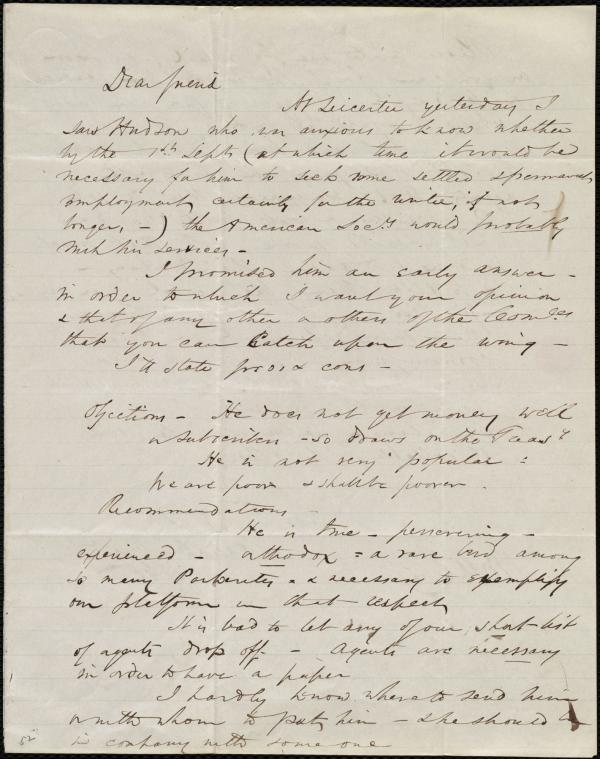 Dear friend
At Leicester yesterday I
saw Hudson who was anxious to know whether
by the 1st Sept. (at which time it would be
necessary for him to seek some settled & permanent
employment certainly for the winter, if not
longer, -) the American Soc.y would probably
wish his services -
I promised him an early answer -
in order to which I want your opinion
& that of any other or others of the Com.ee
that you can catch upon the wing -
I'll state pros & cons -
Objections - He does not get money well
or subscribers - so draws on the Treas.y
He is not very popular :
We are poor & shall be poorer.
Recommendations -
He is true - persevering -
experienced - orthodox = a rare bird among
so many Parkerites - & necessary to exemplify
our platform in that respect
It is bad to let any of our short list
of agents drop off - Agents are necessary
in order to have a paper
I hardly know where to send him
or with whom to put him - & he should be
in company with some one